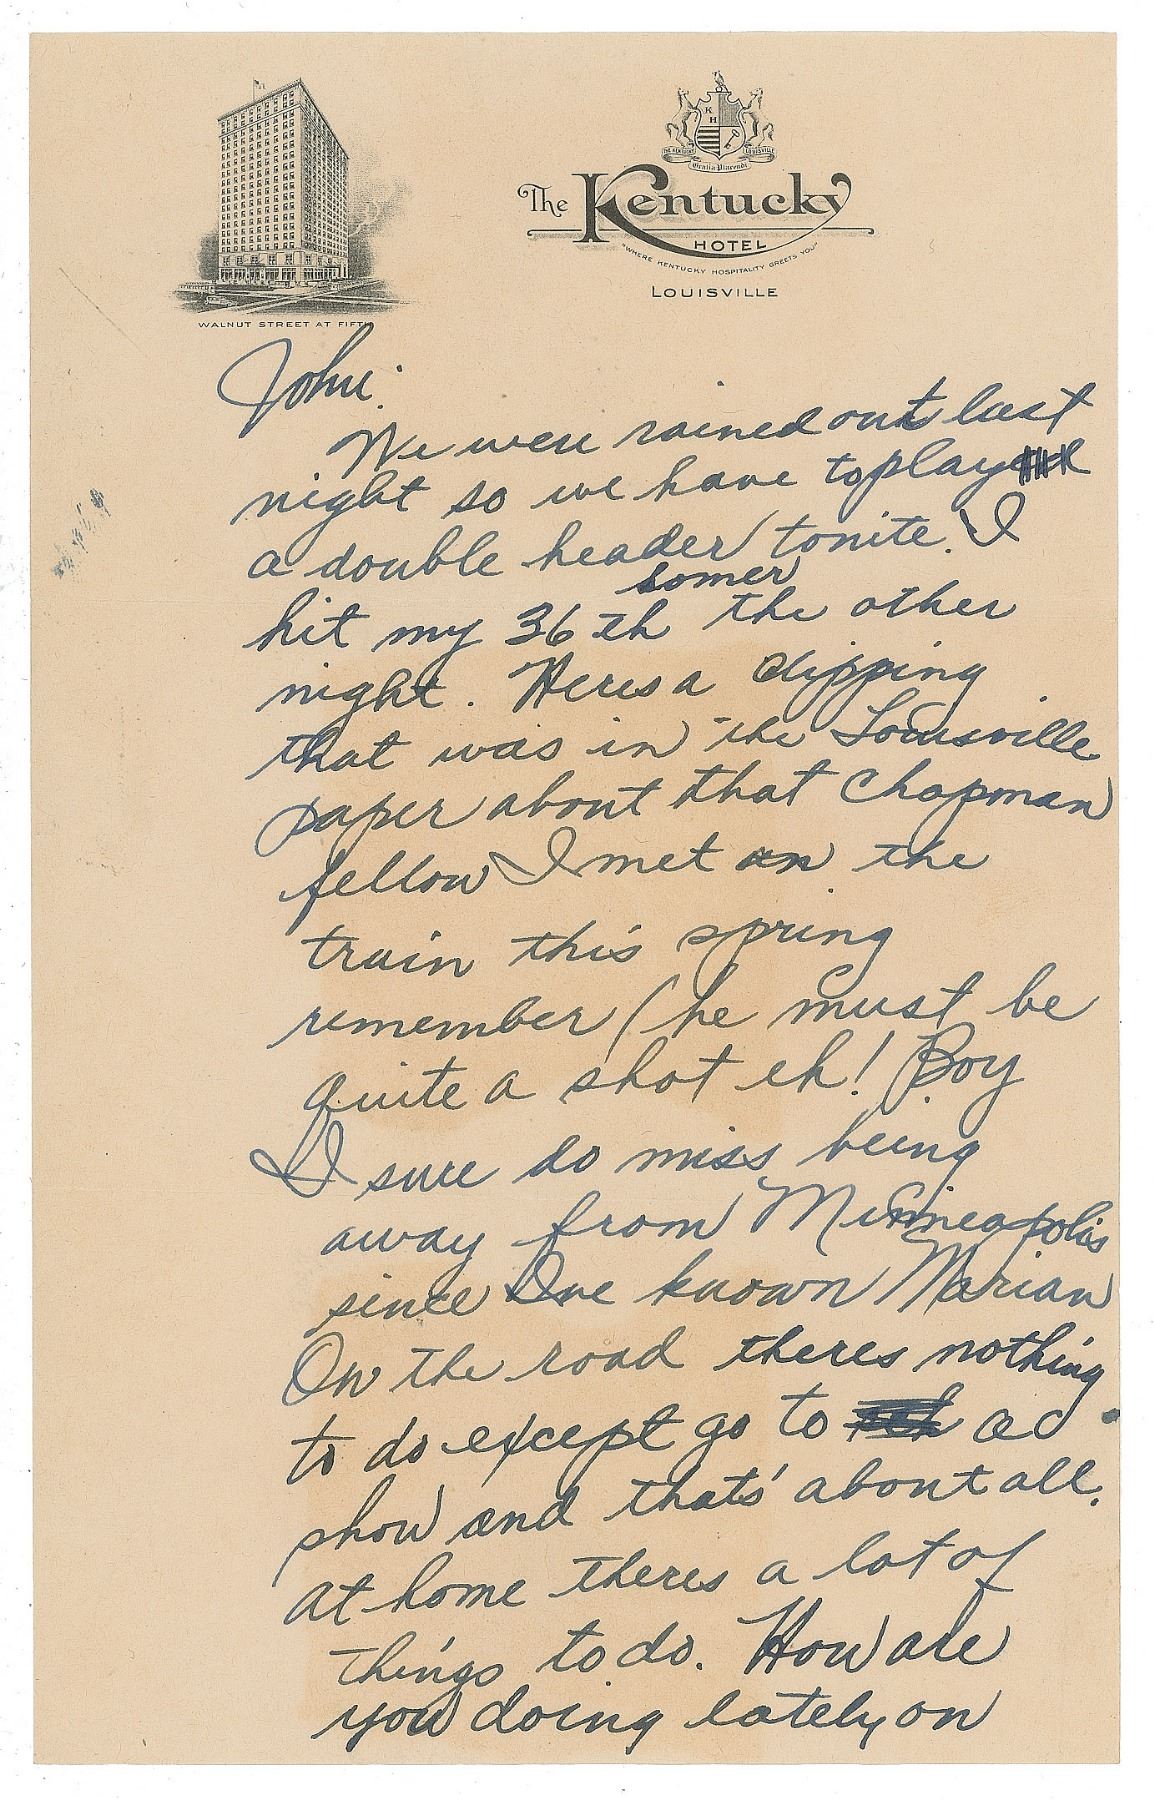 K H
THE KENTUCKY LOUISVILLE
Gratia Placendi
The Kentucky
HOTEL
"WHERE KENTUCKY HOSPITALITY GREETS YOU"
LOUISVILLE
WALNUT STREET AT FIFTH
John:
We were rained out last
night so we have to play
a double header tonite. I
homer
hit my 36th the other
night. Heres a clipping
that was in the Louisville
paper about that Chapman
fellow I met on the
train this spring
remember (he must be
quite a shot eh! Boy
I sure do miss being
away from Minneapolis
since Ive known Marian
On the road theres nothing
to do except go to a
show and thats' about all.
At home theres a lot of
things to do. How are
you doing lately on